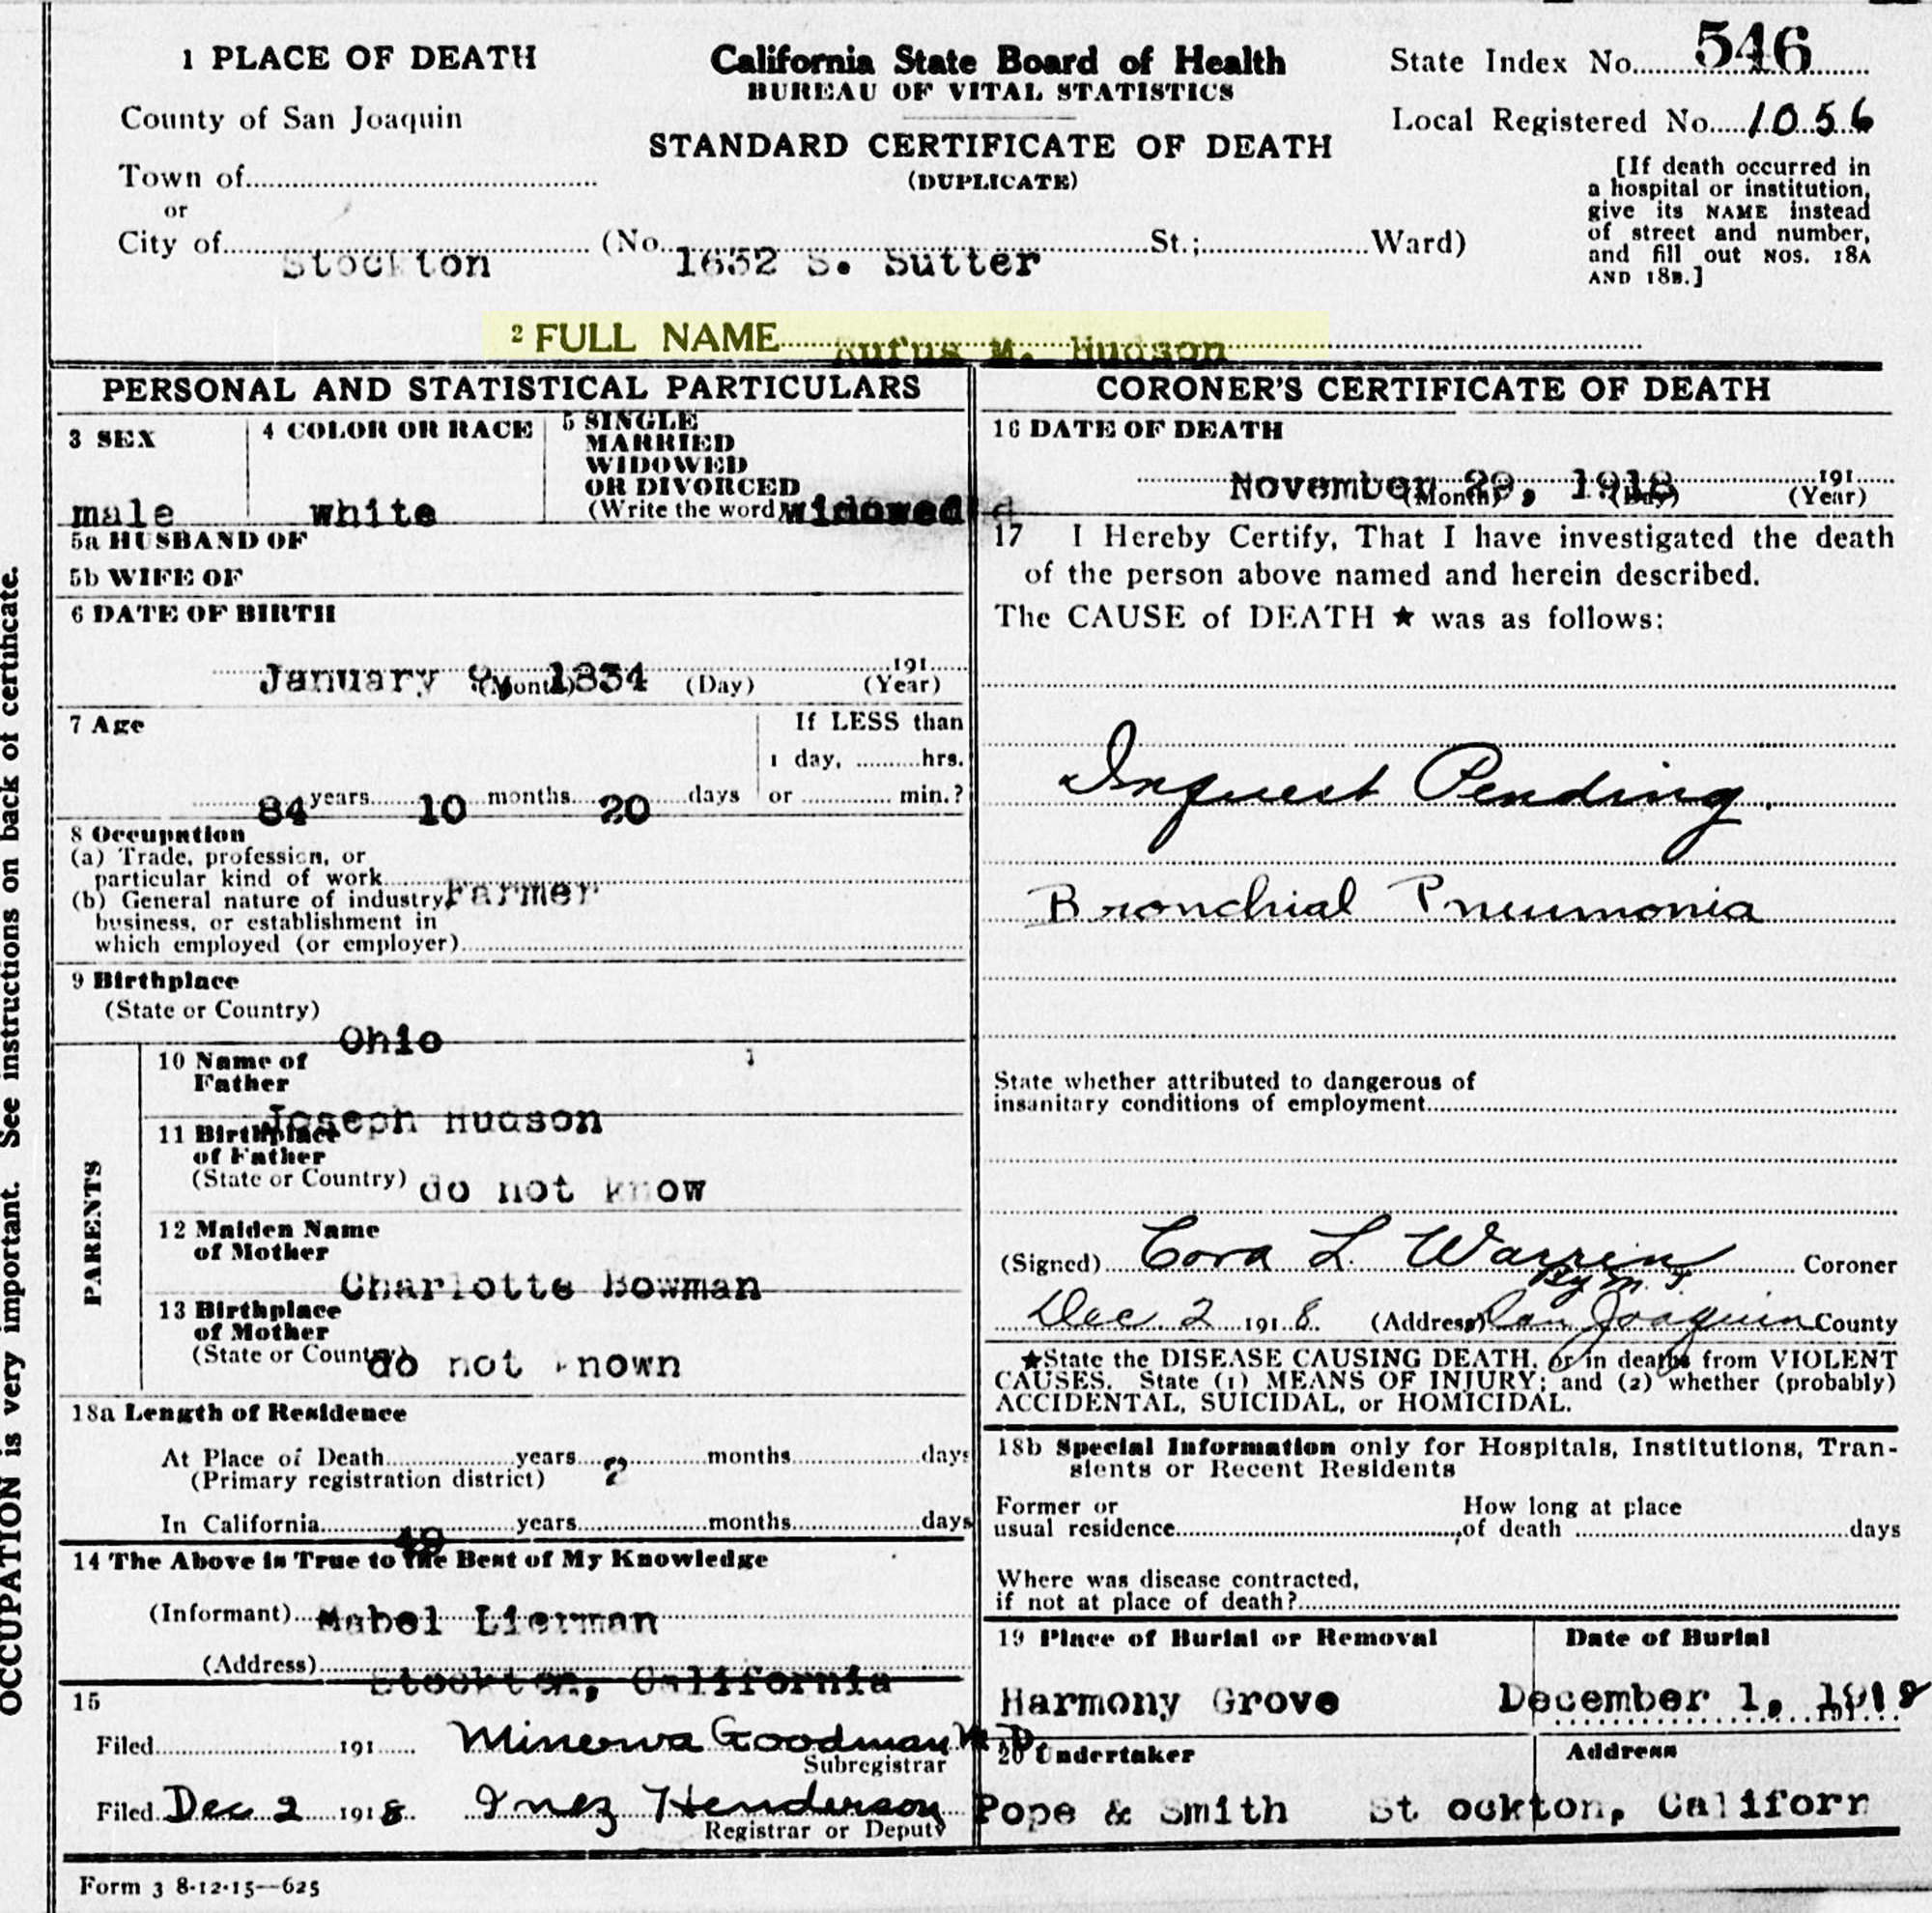 1 PLACE OF DEATH
County of San Joaquin
Town of
or
City of Stockton (No. 1632 S. Sutter St.; Ward)
California State Board of Health
BUREAU OF VITAL STATISTICS
STANDARD CERTIFICATE OF DEATH
(DUPLICATE)
State Index No. 546
Local Registered No. 1056
[If death occurred in
a hospital or institution,
give its NAME instead
of street and number,
and fill out NOS. 18A
AND 18B.]
2 FULL NAME Rufus M. Hudson
PERSONAL AND STATISTICAL PARTICULARS
3 SEX
male
4 COLOR OR RACE
white
5 SINGLE
MARRIED
WIDOWED
OR DIVORCED
(Write the word) widowed
5a HUSBAND OF
5b WIFE OF
6 DATE OF BIRTH
January 9, 1834 191
(Month) (Day) (Year)
7 Age
84 years 10 months 20 days
If LESS than
1 day, hrs.
or min.?
8 Occupation
(a) Trade, profession, or
particular kind of work Farmer
(b) General nature of industry,
business, or establishment in
which employed (or employer)
9 Birthplace
(State or Country)
Ohio
PARENTS
10 Name of
Father
Joseph Hudson
11 Birthplace
of Father
(State or Country) do not know
12 Maiden Name
of Mother
Charlotte Bowman
13 Birthplace
of Mother
(State or Country) do not known
18a Length of Residence
At Place of Death years 2 months days
(Primary registration district)
In California years months days
14 The Above is True to the Best of My Knowledge
(Informant) Mabel Lierman
(Address) Stockton, California
15
Filed 191 Minerva Goodman M.D.
Subregistrar
Filed Dec 2 1918 Inez Henderson
Registrar or Deputy
CORONER'S CERTIFICATE OF DEATH
16 DATE OF DEATH
November 29, 1918 191
(Month) (Day) (Year)
17 I Hereby Certify, That I have investigated the death
of the person above named and herein described.
The CAUSE of DEATH ★ was as follows:
Inquest Pending.
Bronchial Pneumonia
State whether attributed to dangerous of
insanitary conditions of employment
(Signed) Cora L. Warren Coroner
Dec 2 1918. (Address) San Joaquin County
★State the DISEASE CAUSING DEATH, or in deaths from VIOLENT
CAUSES. State (1) MEANS OF INJURY; and (2) whether (probably)
ACCIDENTAL, SUICIDAL, or HOMICIDAL.
18b Special Information only for Hospitals, Institutions, Tran-
sients or Recent Residents
Former or
usual residence
How long at place
of death days
Where was disease contracted,
if not at place of death?
19 Place of Burial or Removal
Harmony Grove
Date of Burial
December 1, 1918
20 Undertaker
Pope & Smith
Address
Stockton, Californ
Form 3 8-12-15—625
OCCUPATION is very important. See instructions on back of certificate.